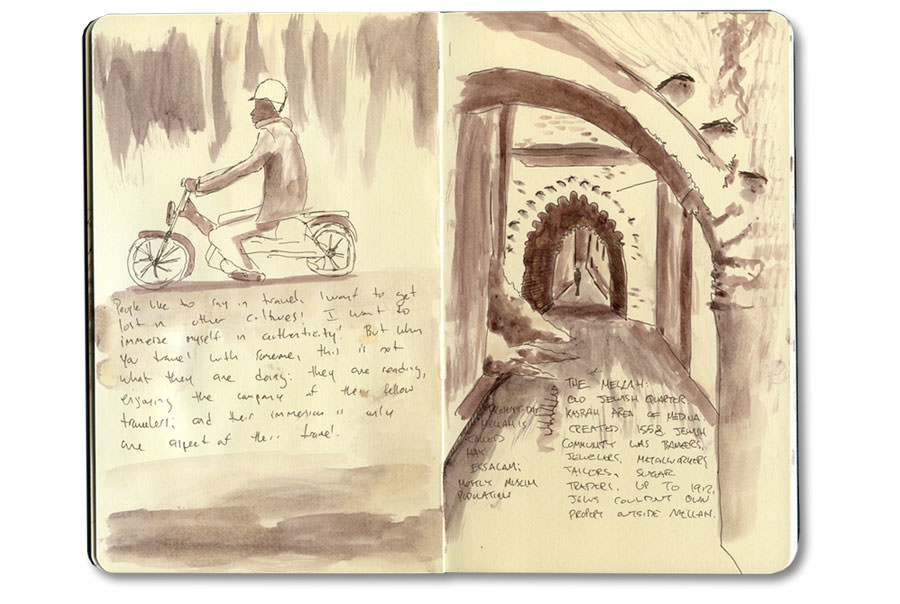 People like to say in travel, I want to get
lost in other cultures! I want to
immerse myself in authenticity! But when
you travel with someone, this is not
what they are doing: they are reading,
enjoying the company of their fellow
travelers; and their immersion is only
one aspect of their travel.
PRESENT-DAY
MELLAH IS
CALLED
HAY
ESSALAM:
MOSTLY MUSLIM
POPULATION
THE MELLAH:
OLD JEWISH QUARTER
KASBAH AREA OF MEDINA.
CREATED 1558. JEWISH
COMMUNITY WAS BANKERS,
JEWELERS, METALWORKERS
TAILORS, SUGAR
TRADERS. UP TO 1912,
JEWS COULDN'T OWN
PROPERTY OUTSIDE MELLAH.